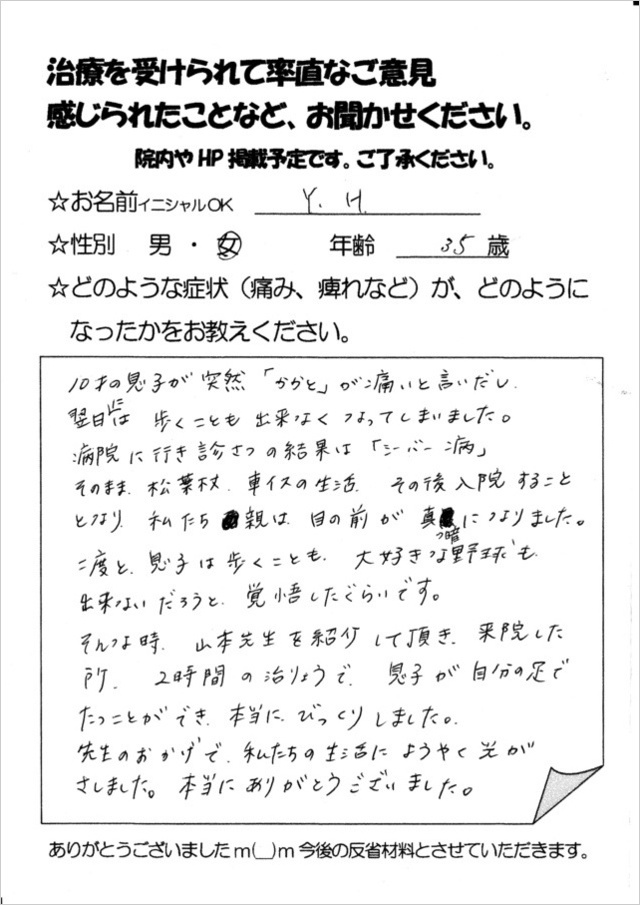 治療を受けられて率直なご意見
感じられたことなど、お聞かせください。
院内やHP掲載予定です。ご了承ください。
☆お名前イニシャルOK Y. H.
☆性別 男・女 年齢 35歳
☆どのような症状（痛み、痺れなど）が、どのように
なったかをお教えください。
10才の息子が突然「かかと」が痛いと言いだし
翌日には歩くことも出来なくなってしまいました。
病院に行き診さつの結果は「シーバー病」
そのまま、松葉杖、車イスの生活、その後入院すること
となり、私たち親は、目の前が真暗になりました。
二度と、息子は歩くことも、大好きな野球も
出来ないだろうと、覚悟したぐらいです。
そんな時、山本先生を紹介して頂き、来院した
所、2時間の治りょうで、息子が自分の足で
たつことができ、本当に、びっくりしました。
先生のおかげで、私たちの生活にようやく光が
さしました。本当にありがとうございました。
ありがとうございましたm(__)m今後の反省材料とさせていただきます。